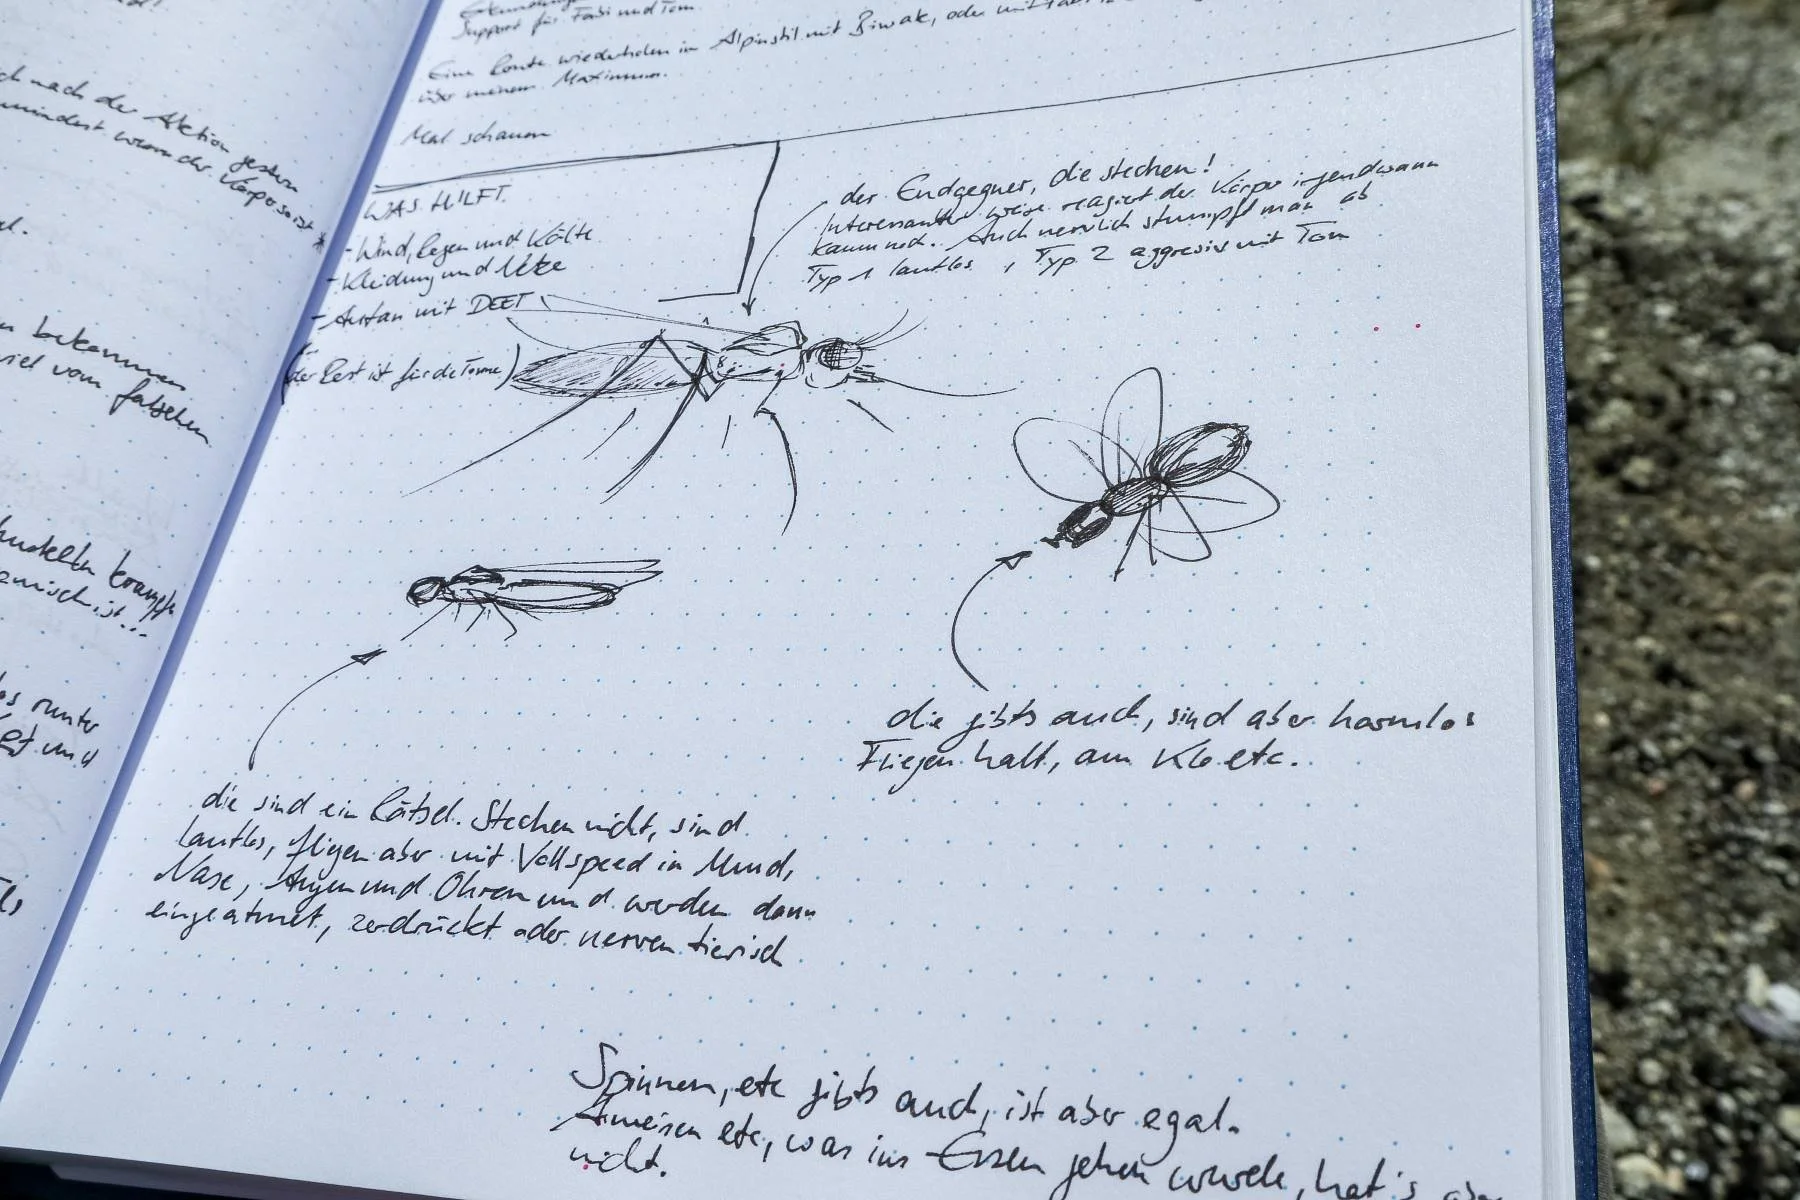 ch nach der Aktion gestern
mindest wenn der Körper so ist
n bekommen
viel vom falschen
krampft
runter
und
Support für Fabi und Tom
Eine Route wiederholen im Alpinstil mit Biwak, oder mit
über meinem Maximum.
Mal schauen
WAS HILFT.
- Wind, Regen und Kälte
- Kleidung und Netze
- Autan mit DEET
(der Rest ist für die Tonne)
der Endgegner, die stechen!
Interessanter weise reagiert der Körper irgendwann
kaum noch. Auch nervlich stumpft man ab
Typ 1 lautlos, Typ 2 aggresiv mit Ton
die gibts auch, sind aber harmlos
Fliegen halt, am Klo etc.
die sind ein Rätsel. Stechen nicht, sind
lautlos, fligen aber mit Vollspeed in Mund,
Nase, Augen und Ohren und werden dann
eingeatmet, zerdrückt oder nerven tierisch
Spinnen, etc gibts auch, ist aber egal.
Ameisen etc, was ins Essen gehen würde, hat's aber
nicht.